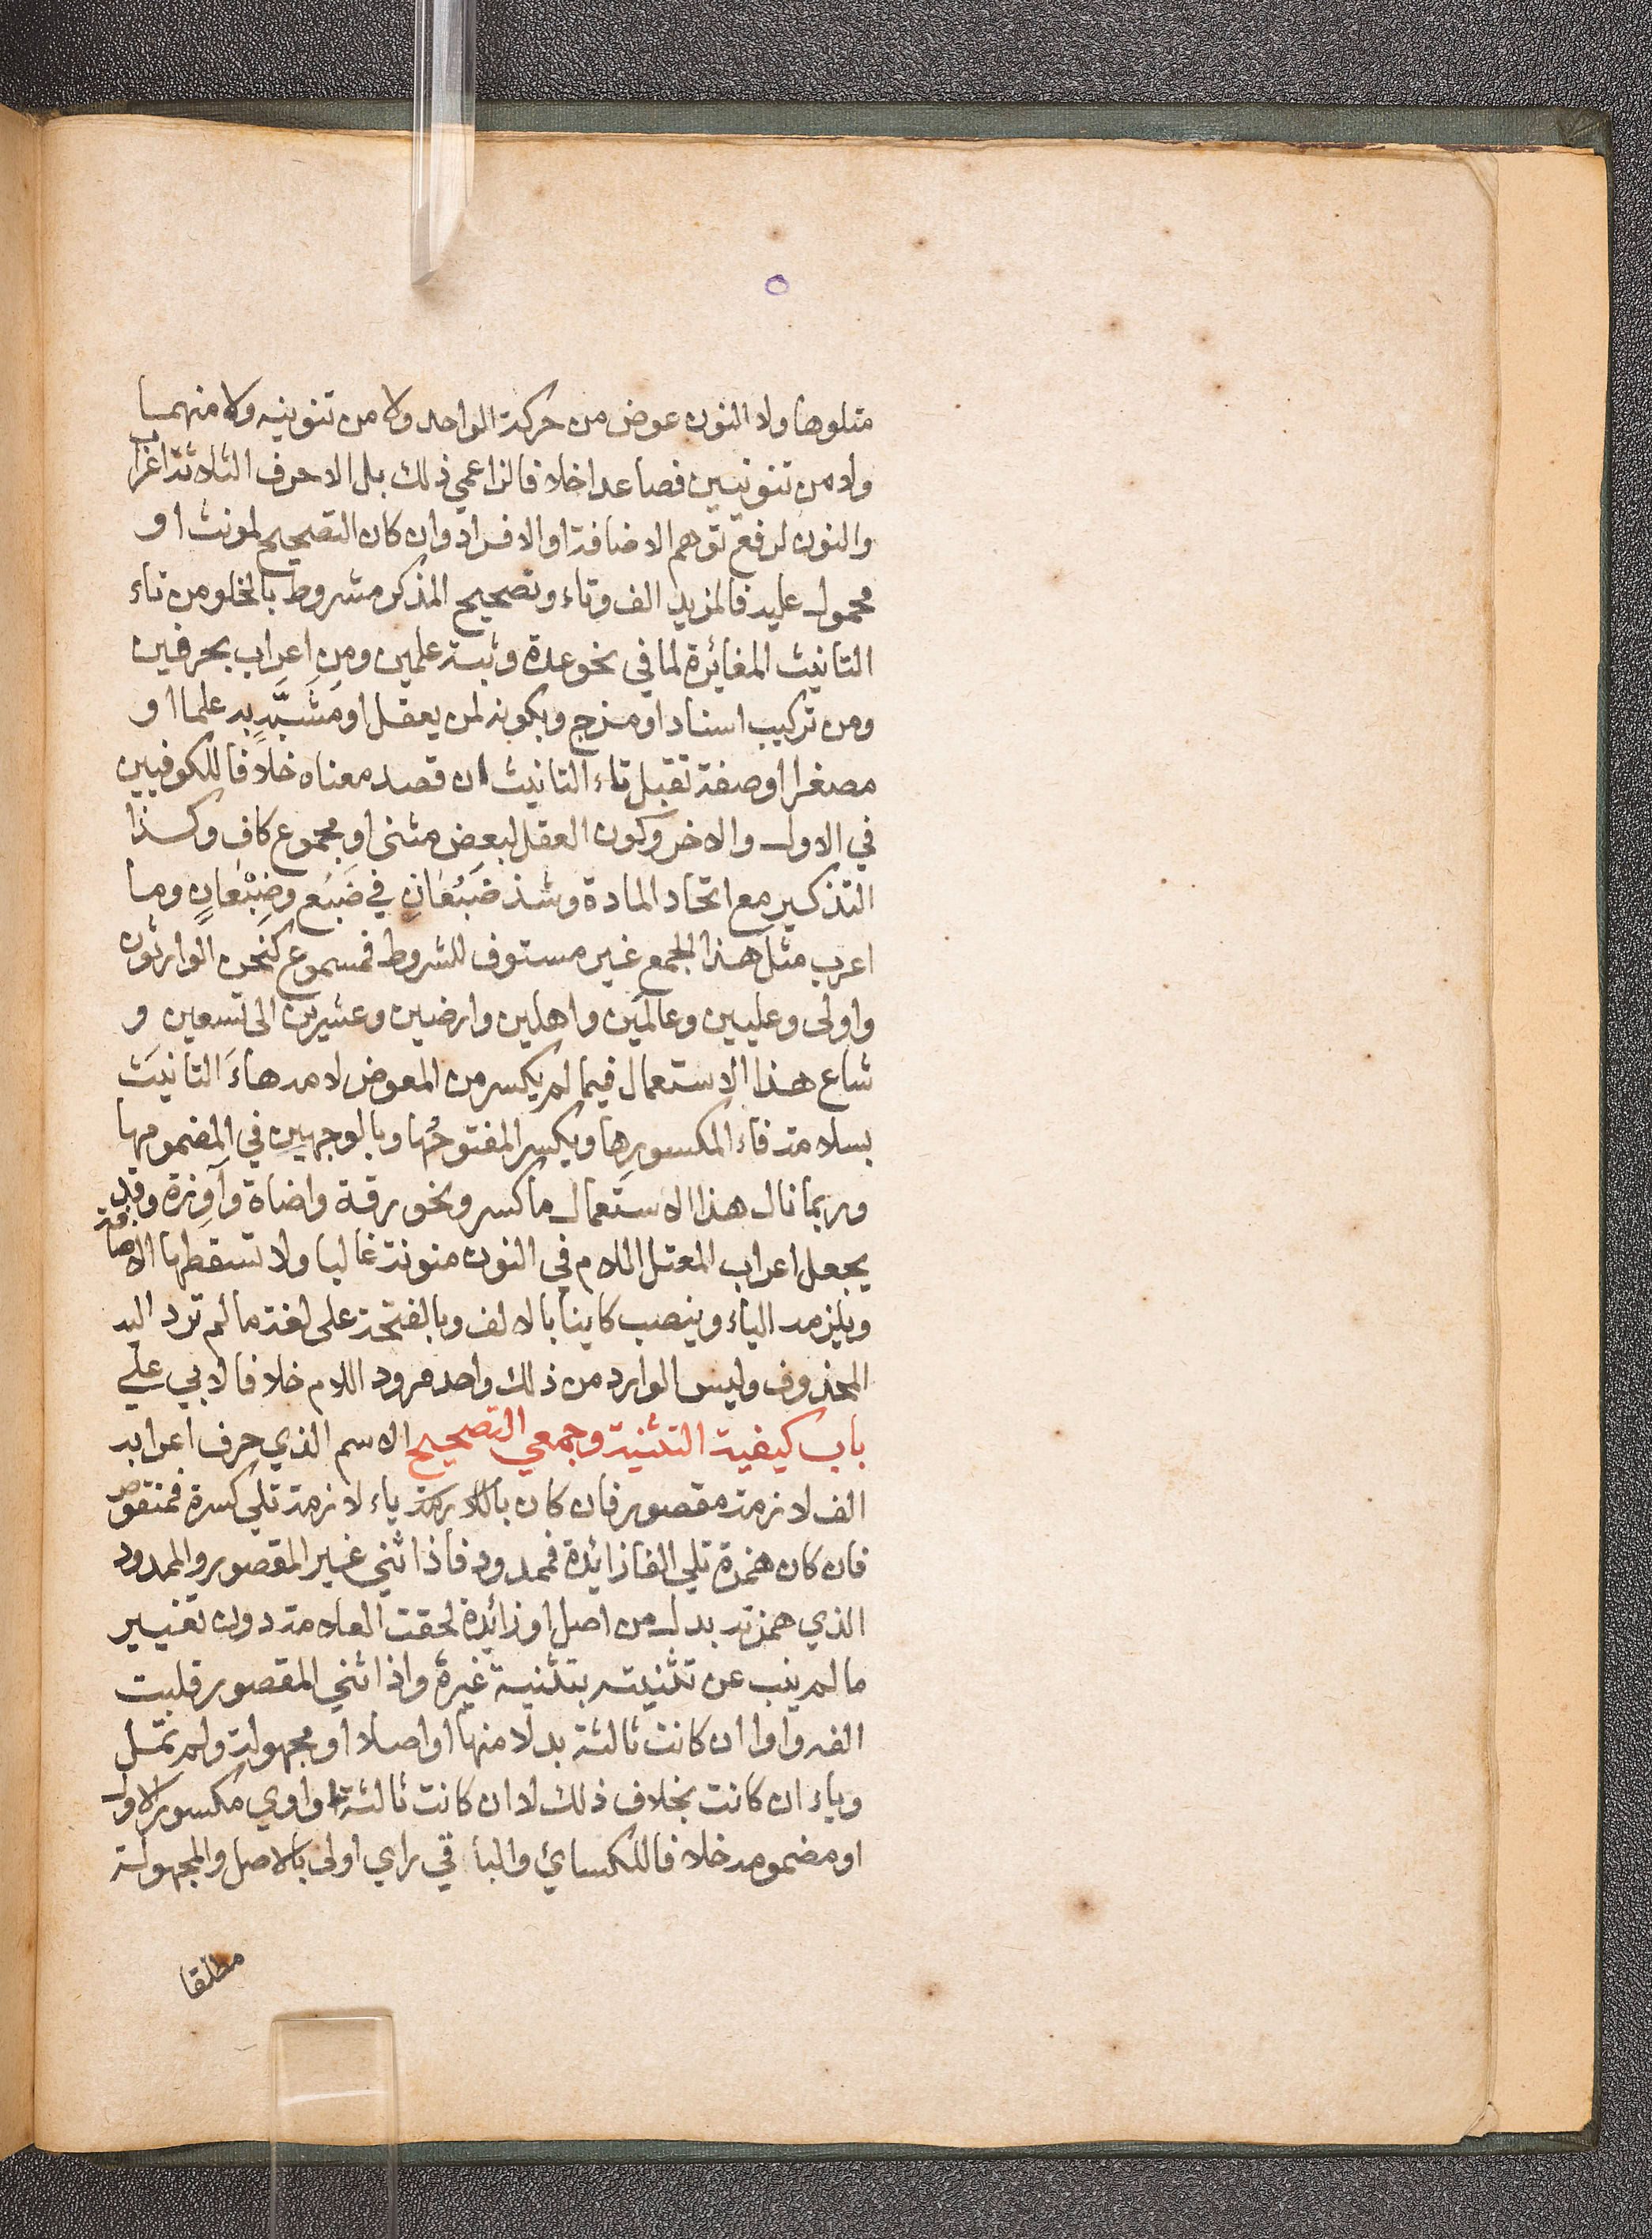 متلوها ولا النون عوض من حركة الواحد ولا من تنوينه ولا منهما
ولا من تنونيين فصاعدا خلافا لزاعمي ذلك بل الاحرف الثلاثة اعراب
والنون لرفع توهم الاضافة او الافراد وان كان التصحيح لمونث او
محمول عليه فالمزيد الف وتاء وتصحيح المذكر مشروط بالخلو من تاء
التانيث المغائرة لما في نحو عدة وثبة علمين ومن اعراب بحرفين
ومن تركيب اسناد او مزج وبكونه لمن يعقل او مشبَّهٍ به علما او
مصغرا او صفة تقبل تاء التانيث ان قصد معناه خلافا للكوفيين
في الاول والاخر وكون العقل لبعض مثنى او مجموع كاف وكذا
التذكير مع اتحاد المادة وشذ ضَبُعَانِ في ضَبُع وضِبْعَانٍ وما
اعرب مثل هذا الجمع غير مستوف للشروط فمسموع كنحن الوارثون
واولى وعليين وعالمَين واهلين وارضين وعشرين الى تسعين و
شاع هذا الاستعمال فيما لم يكسر من المعوض لامه هاءَ التانيث
بسلامة فاء المكسورِها وبكسر المفتوحُها وبالوجهين في المضمومها
وربما نال هذا الاستعمال ما كسر ونحو رقة واضاة وآوِزة وقد
يجعل اعراب المعتل اللام في النون منونة غالبا ولا تسقطها الاضافة
ويلزمه الياء وينصب كاينا بالالف وبالفتحة على لغة ما لم ترد اليه
المحذوف وليس الوارد من ذلك واحد مردود اللام خلافا لابي علي
باب كيفية التثنية وجمعي التصحيح الاسم الذي حرف اعرابه
الف لازمة مقصور فان كان ياء لازمة تلي كسرة فمنقوص
فان كان همزة تلي الفا زائدة فممدود فاذا ثني غير المقصور والممدود
الذي همزته بدل من اصل او زائدة لحقت العلامة دون تغيير
ما لم ينب عن تثنيته بتثنية غيره واذا ثني المقصور قلبت
الفه واوا ان كانت ثالثة بدلا منها او اصلا او مجهولة ولم تمل
وياء ان كانت بخلاف ذلك لا ان كانت ثالثة واوي مكسور الاول
او مضمومه خلافا للكسائي واليا في راي اولى بالاصل والمجهولة
مطلقا